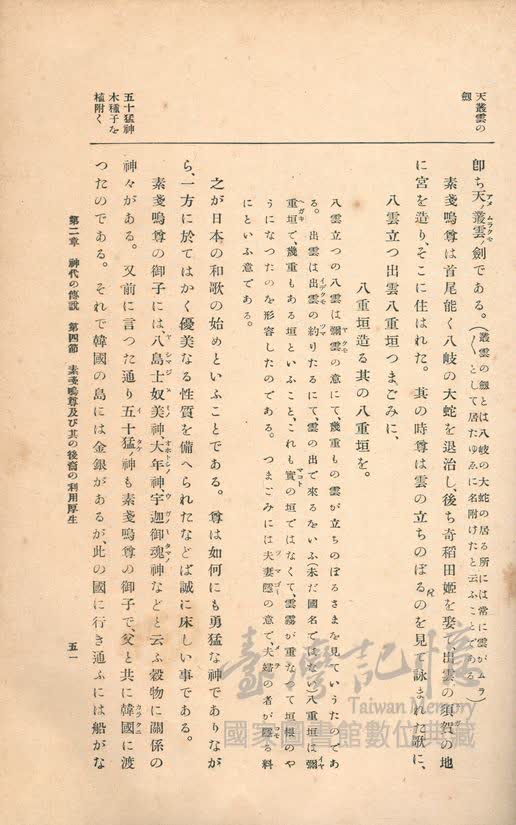 天叢雲の
劔
卽ち天ノ叢雲ノ劍である。(叢雲の劔とは八岐の大蛇の居る所には常に雲がムラ
〱として居たゆゑに名附けたと云ふことである)
素戔嗚尊は首尾能く八岐の大蛇を退治し、後ち奇稻田姬を娶り、出雲の須賀の地
に宮を造り、そこに住はれた。其の時尊は雲の立ちのぼるのを見て詠まれた歌に、
八雲立つ出雲八重垣つまごみに、
八重垣造る其の八重垣を。
八雲立つの八雲は彌雲の意にて、幾重もの雲が立ちのぼるさまを見ていうたのであ
る。出雲は出雲の約りたるにて、雲の出で來るをいふ(未だ國名ではない)八重垣は彌
重垣で、幾重もある垣といふこと、これも實の垣ではなくて、雲霧が重なつて垣根のや
うになつたのを形容したのである。つまごみには夫妻隱の意で、夫婦の者が隱る料
にといふ意である。
之が日本の和歌の始めといふことである。尊は如何にも勇猛な神でありなが
ら、一方に於てはかく優美なる性質を備へられたなどは誠に床しい事である。
素戔嗚尊の御子には、八島士奴美神、大年神宇迦御魂神などと云ふ穀物に關係の
神々がある。又前に言つた通り五十猛ノ神も素戔嗚尊の御子で、父と共に韓國に渡
つたのである。それで韓國の島には金銀があるが、此の國に行き通ふには船がな
五十猛神
木種子を
植附く
第二章 神代の傳說 第四節 素戔嗚尊及び其の後裔の利用厚生
五一
臺灣記憶
Taiwan Memory
國家圖書館數位典藏